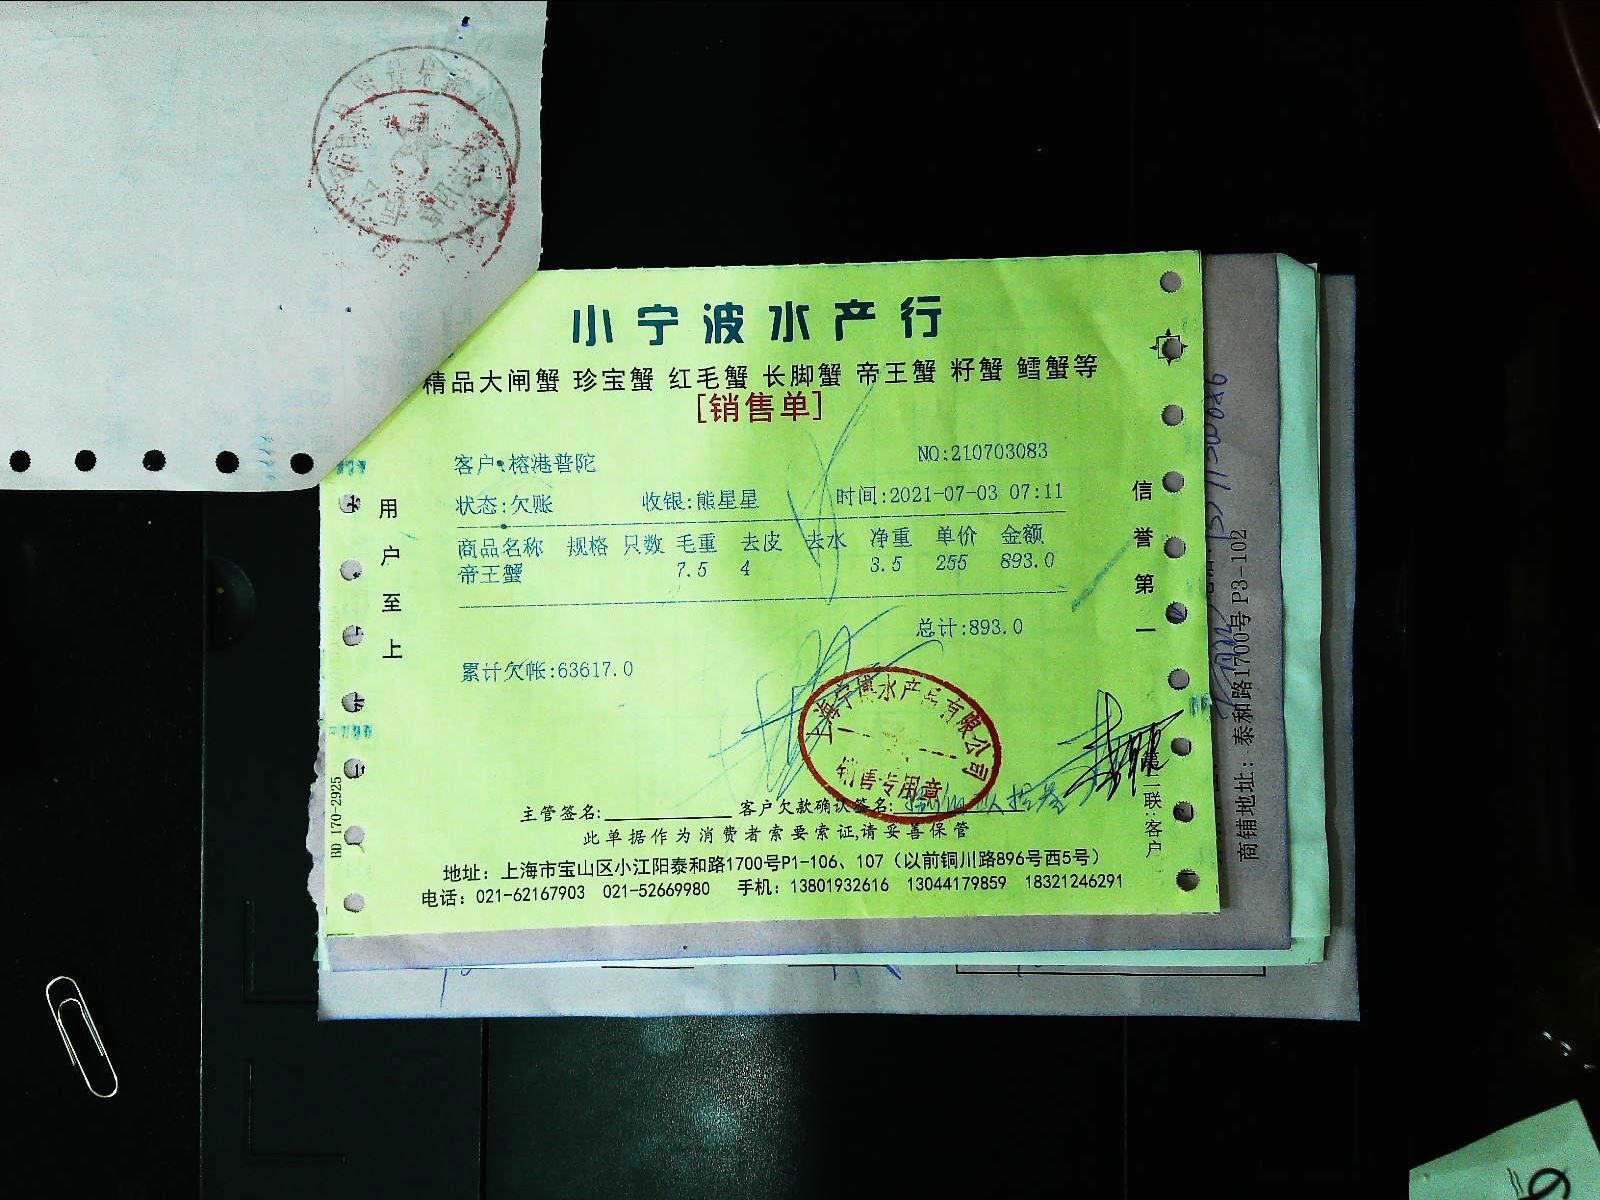 小宁波水产行
精品大闸蟹 珍宝蟹 红毛蟹 长脚蟹 帝王蟹 籽蟹 鳕蟹等
[销售单]
客户:榕港普陀 NO:210703083
状态:欠账 收银:熊星星 时间:2021-07-03 07:11
商品名称 规格 只数 毛重 去皮 去水 净重 单价 金额
帝王蟹 7.5 4 3.5 255 893.0
总计:893.0
累计欠帐:63617.0
用户至上
信誉第一
上海宁博水产品有限公司
销售专用章
主管签名: 客户欠款确认签名:
此单据作为消费者索要索证,请妥善保管
地址：上海市宝山区小江阳泰和路1700号P1-106、107（以前铜川路896号西5号）
电话：021-62167903 021-52669980 手机：13801932616 13044179859 18321246291
BD 170-2925
第二联:客户
商铺地址：泰和路1700号 P3-102